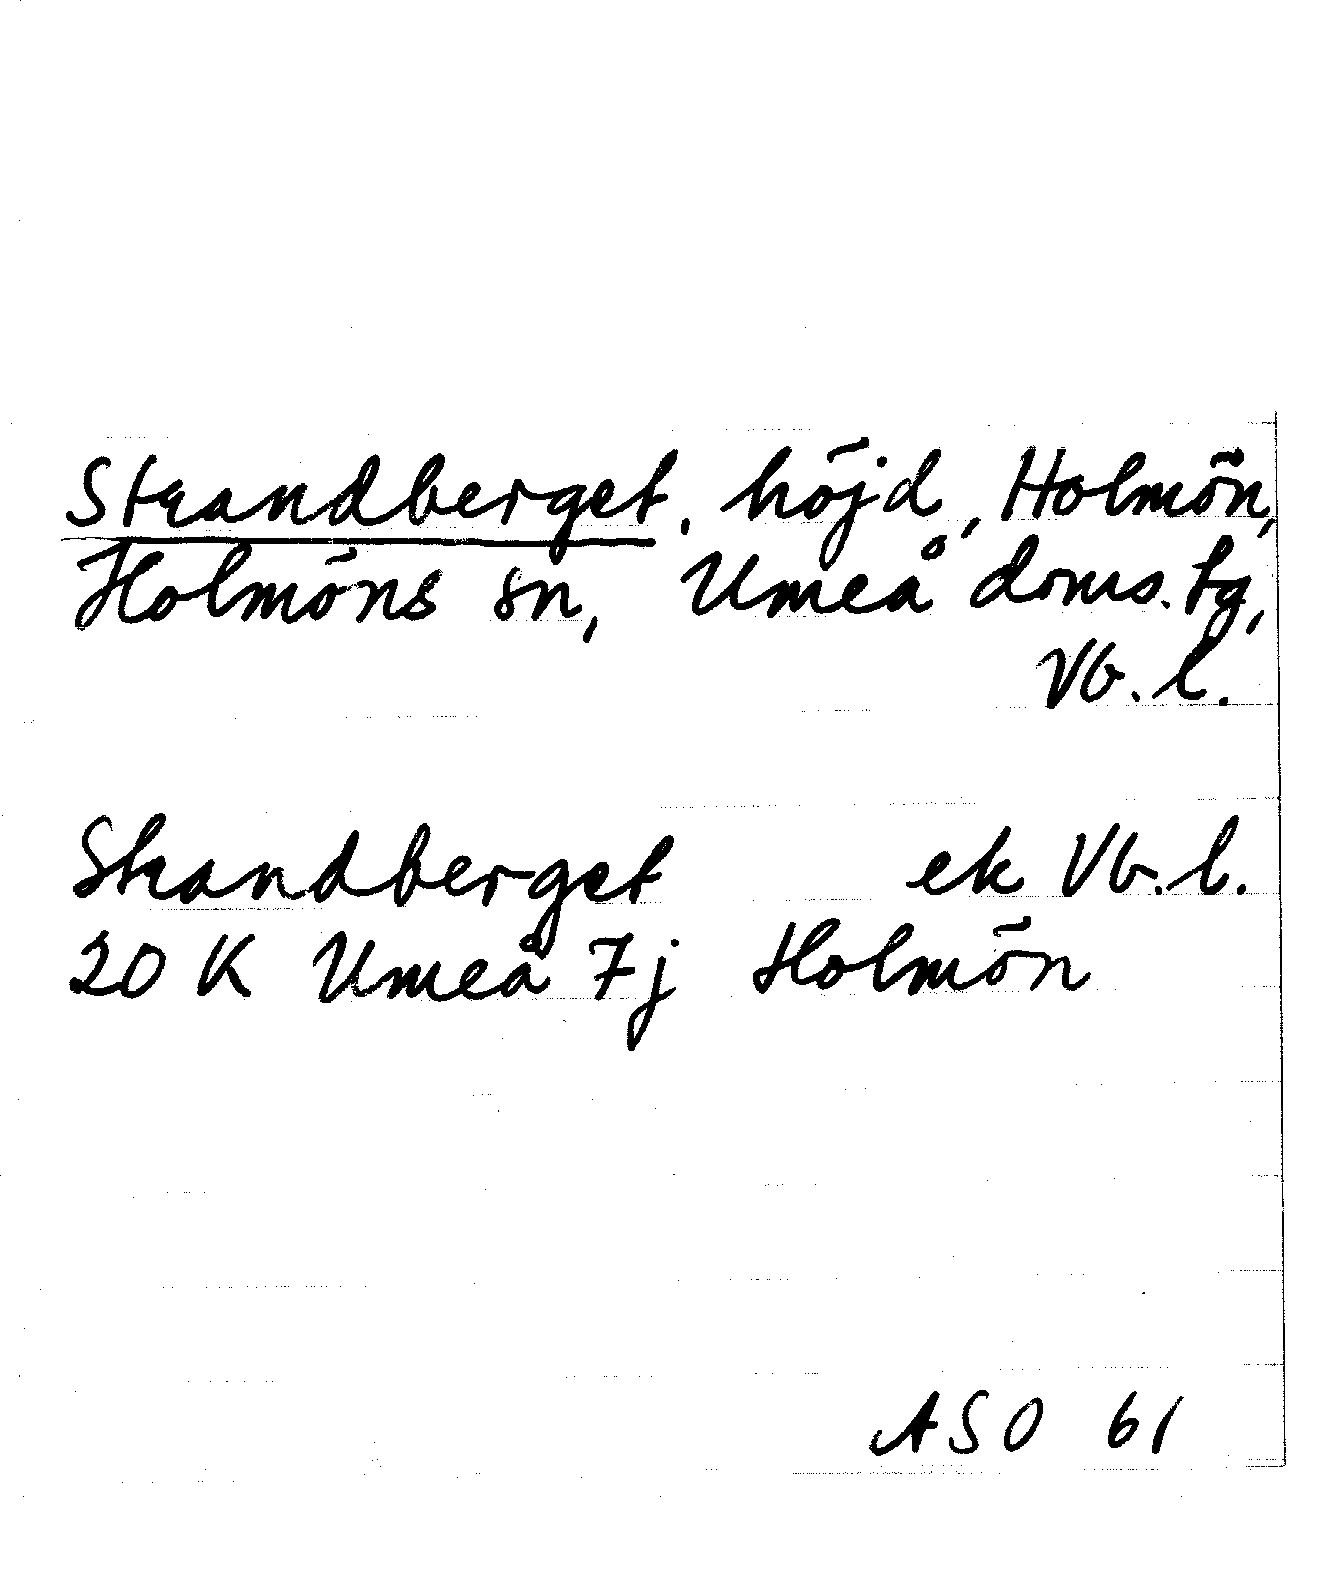 Strandberget, höjd, Holmön,
Holmöns sn, Umeå doms. tg,
Vb. l.
Strandberget ek Vb. l.
20 K Umeå 7j Holmön
ASO 61